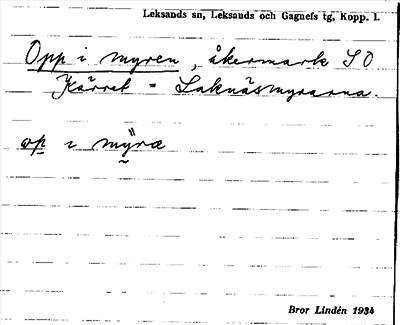 Leksands sn, Leksands och Gagnefs tg, Kopp. l.
Opp i myren, åkermark SO
Kärret = Laknäsmyrarna.
op i myra
Bror Lindén 1934